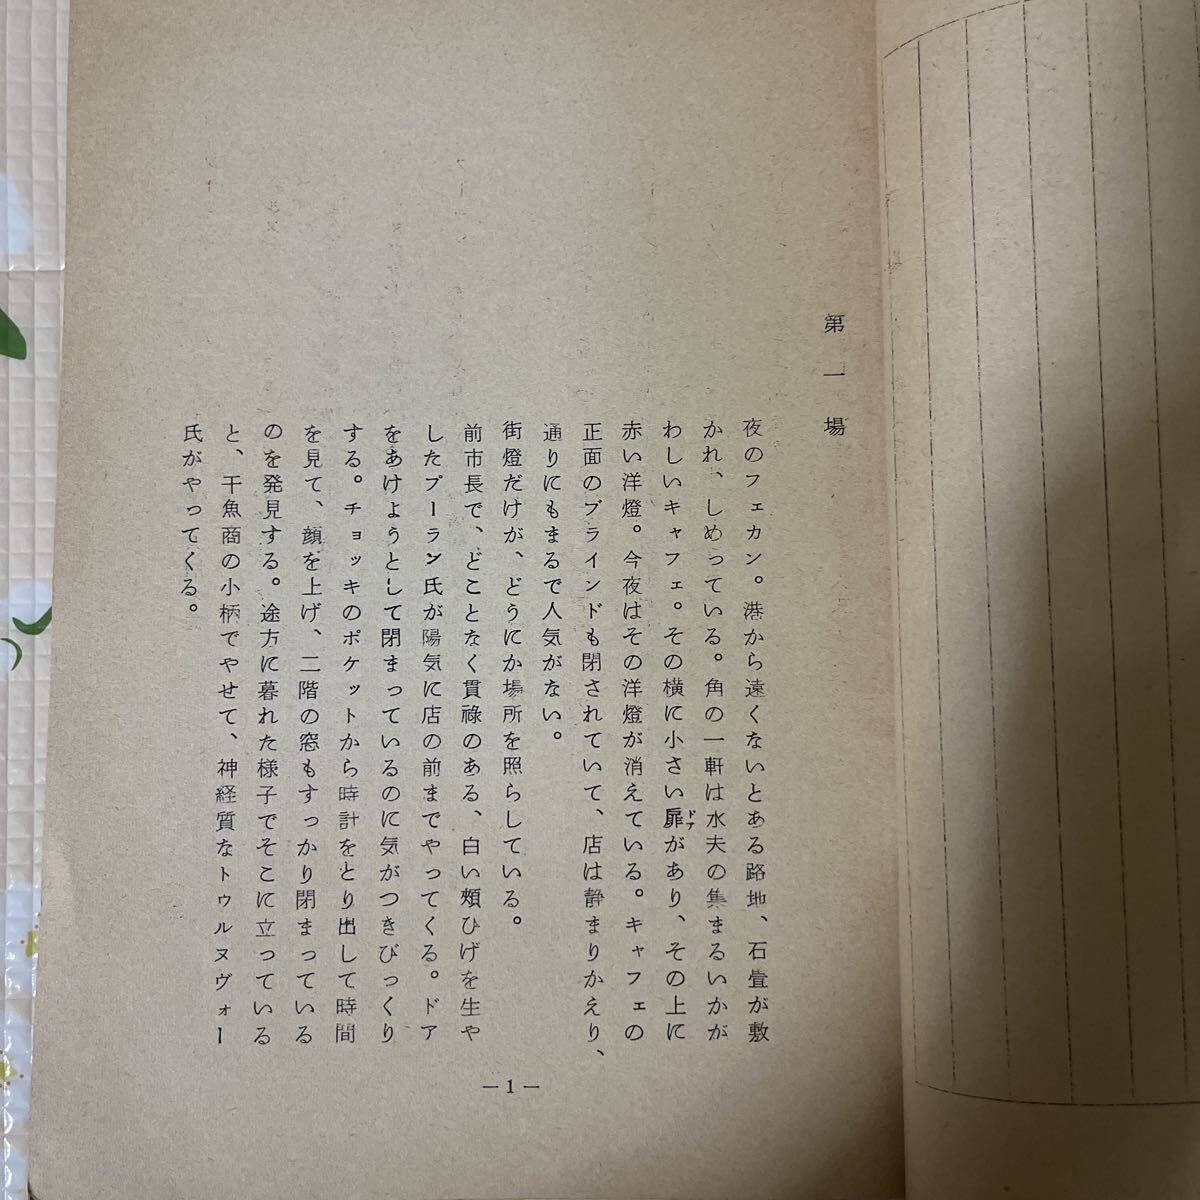 第一場
夜のフェカン。港から遠くないとある路地、石畳が敷
かれ、しめっている。角の一軒は水夫の集まるいかが
わしいキャフェ。その横に小さい扉があり、その上に
ドア
赤い洋燈。今夜はその洋燈が消えている。キャフェの
正面のブラインドも閉されていて、店は静まりかえり、
通りにもまるで人気がない。
街燈だけが、どうにか場所を照らしている。
前市長で、どことなく貫禄のある、白い頰ひげを生や
したプーラン氏が陽気に店の前までやってくる。ドア
をあけようとして閉まっているのに気がつきびっくり
する。チョッキのポケットから時計をとり出して時間
を見て、顔を上げ、二階の窓もすっかり閉まっている
のを発見する。途方に暮れた様子でそこに立っている
と、干魚商の小柄でやせて、神経質なトゥルヌヴォー
氏がやってくる。
—1—